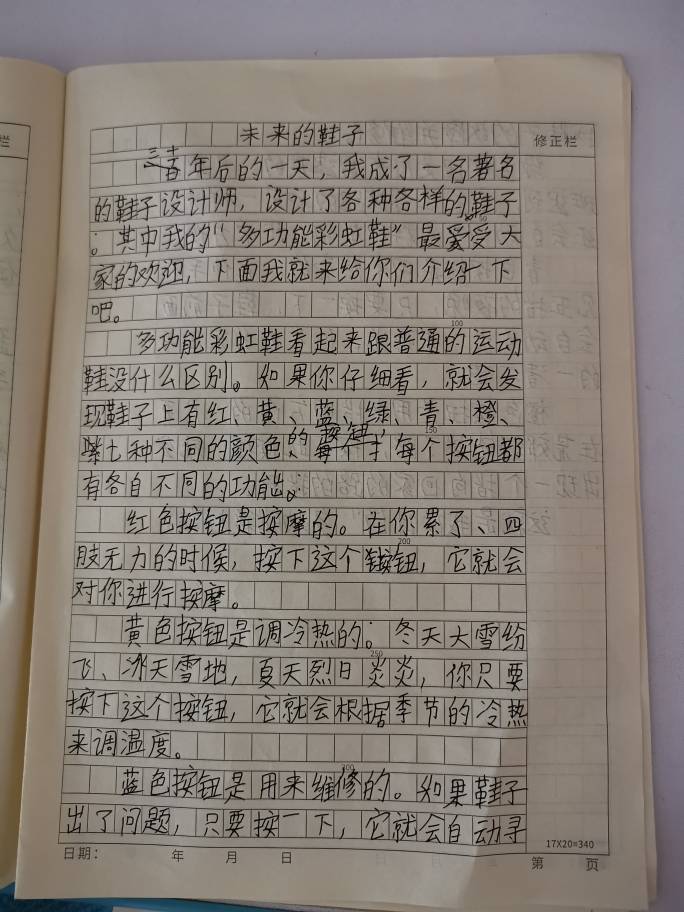 未来的鞋子
修正栏
栏
三十年后的一天，我成了一名著名
的鞋子设计师，设计了各种各样的鞋子
。其中我的“多功能彩虹鞋”最爱受大
50
家的欢迎，下面我就来给你们介绍一下
吧。
100
多功能彩虹鞋看起来跟普通的运动
鞋没什么区别。如果你仔细看，就会发
现鞋子上有红、黄、蓝、绿、青、橙、
150
紫七种不同的颜色的按钮，每个按钮都
有各自不同的功能。
红色按钮是按摩的。在你累了、四
200
肢无力的时候，按下这个按钮，它就会
对你进行按摩。
黄色按钮是调冷热的。冬天大雪纷
250
飞、冰天雪地，夏天烈日炎炎，你只要
按下这个按钮，它就会根据季节的冷热
来调温度。
300
蓝色按钮是用来维修的。如果鞋子
出了问题，只要按一下，它就会自动寻
17X20=340
日期： 年 月 日 第 页